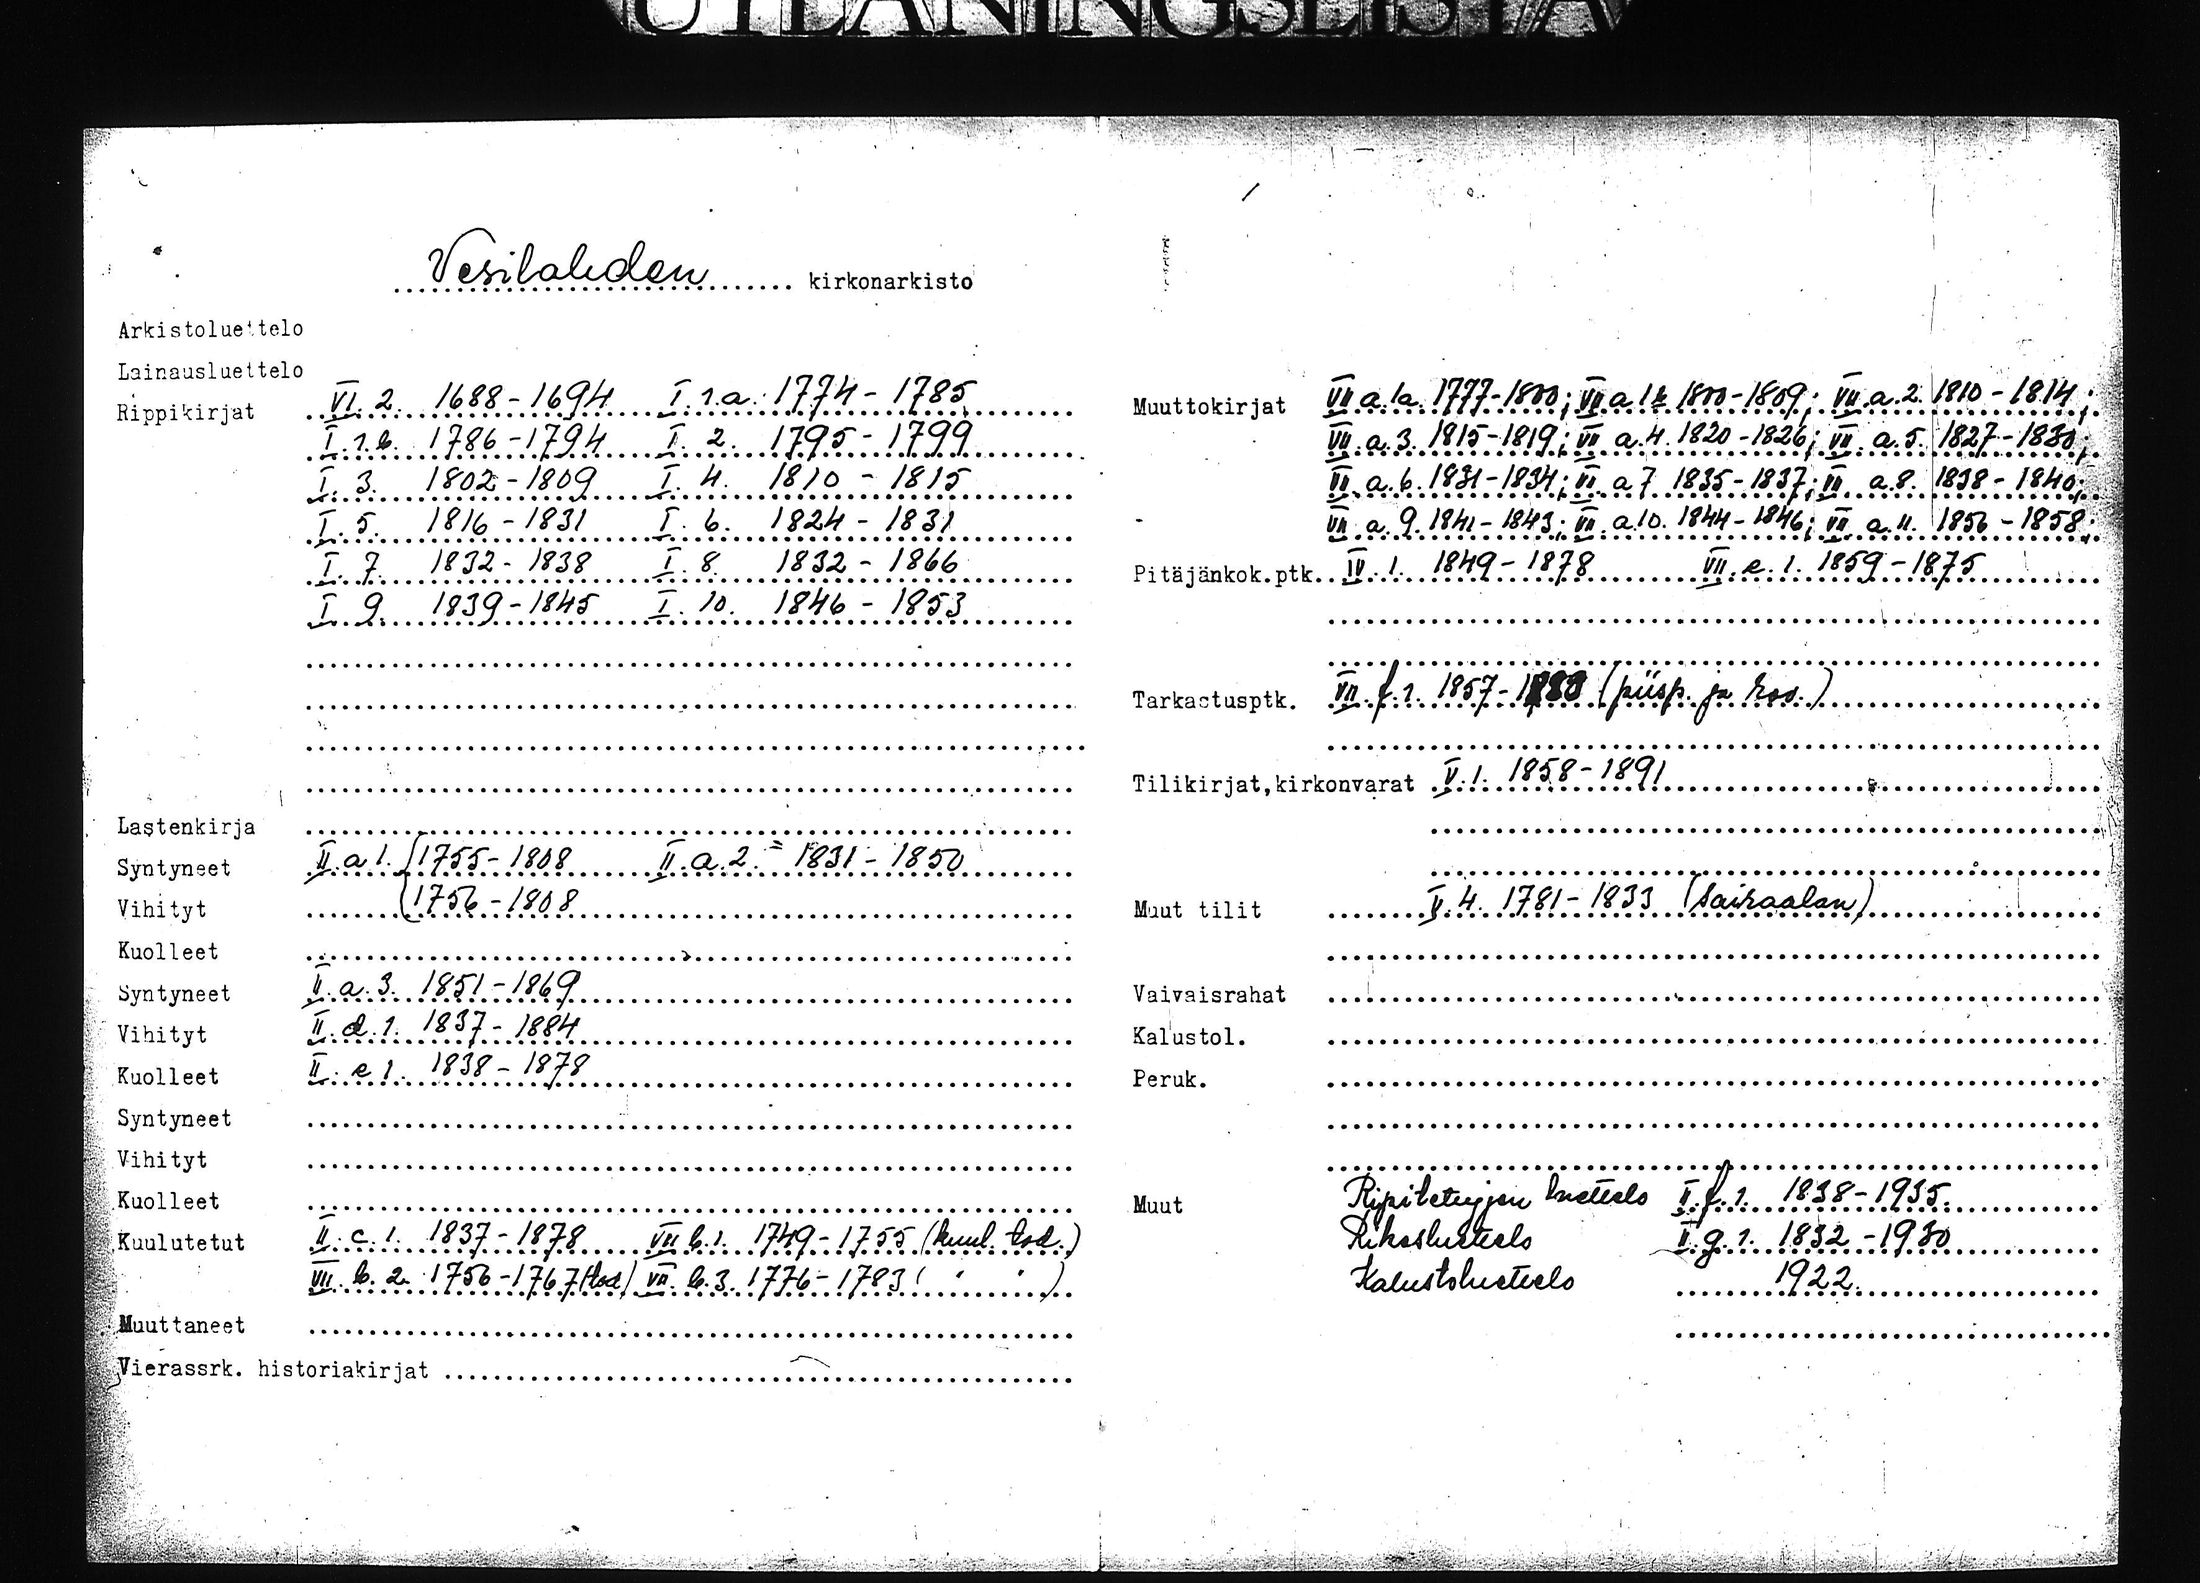 UTLÅNINGSLISTA
Vesilahden kirkonarkisto
Arkistoluettelo
Lainausluettelo
Rippikirjat VI. 2. 1688-1694 I. 1.a. 1774-1785
I. 1.b. 1786-1794 I. 2. 1795-1799
I. 3. 1802-1809 I. 4. 1810-1815
I. 5. 1816-1831 I. 6. 1824-1831
I. 7 1832-1838 I. 8. 1832-1866
I. 9. 1839-1845 I. 10. 1846-1853
Lastenkirja
Syntyneet II.a 1. 1755-1808 II.a.2. 1831-1850
Vihityt 1756-1808
Kuolleet
Syntyneet II.a.3. 1851-1869
Vihityt II.d.1. 1837-1884
Kuolleet II.e 1. 1838-1878
Syntyneet
Vihityt
Kuolleet
Kuulutetut II.c.1. 1837-1878 VII b.1. 1749-1755 (kuul. tod.)
VII. b. 2. 1756-1767 (tod) VII. b.3. 1776-1783 ( " " )
Muuttaneet
Vierassrk. historiakirjat
Muuttokirjat VII a.1a. 1777-1800; VII a 1b 1800-1809; VII.a.2. 1810-1814;
VII.a.3. 1815-1819; VII a.4. 1820-1826; VII.a.5. 1827-1830;
VII.a.6. 1831-1834; VII.a 7 1835-1837; VII a.8. 1838-1840;
VII a.9. 1841-1843; VII.a.10. 1844-1846; VII a.11. 1856-1858;
Pitäjänkok.ptk. IV.1. 1849-1878 VII.e.1. 1859-1875
Tarkastusptk. VII.f.1. 1857- (piisp. ja rov.)
Tilikirjat,kirkonvarat V.1. 1858-1891
Muut tilit V.4. 1781-1833 (sairaalan)
Vaivaisrahat
Kalustol.
Peruk.
Muut Ripiletujen luettelo II.f.1. 1838-1935.
Rikosluettelo II.g.1. 1832-1930
Kalustoluettelo 1922.